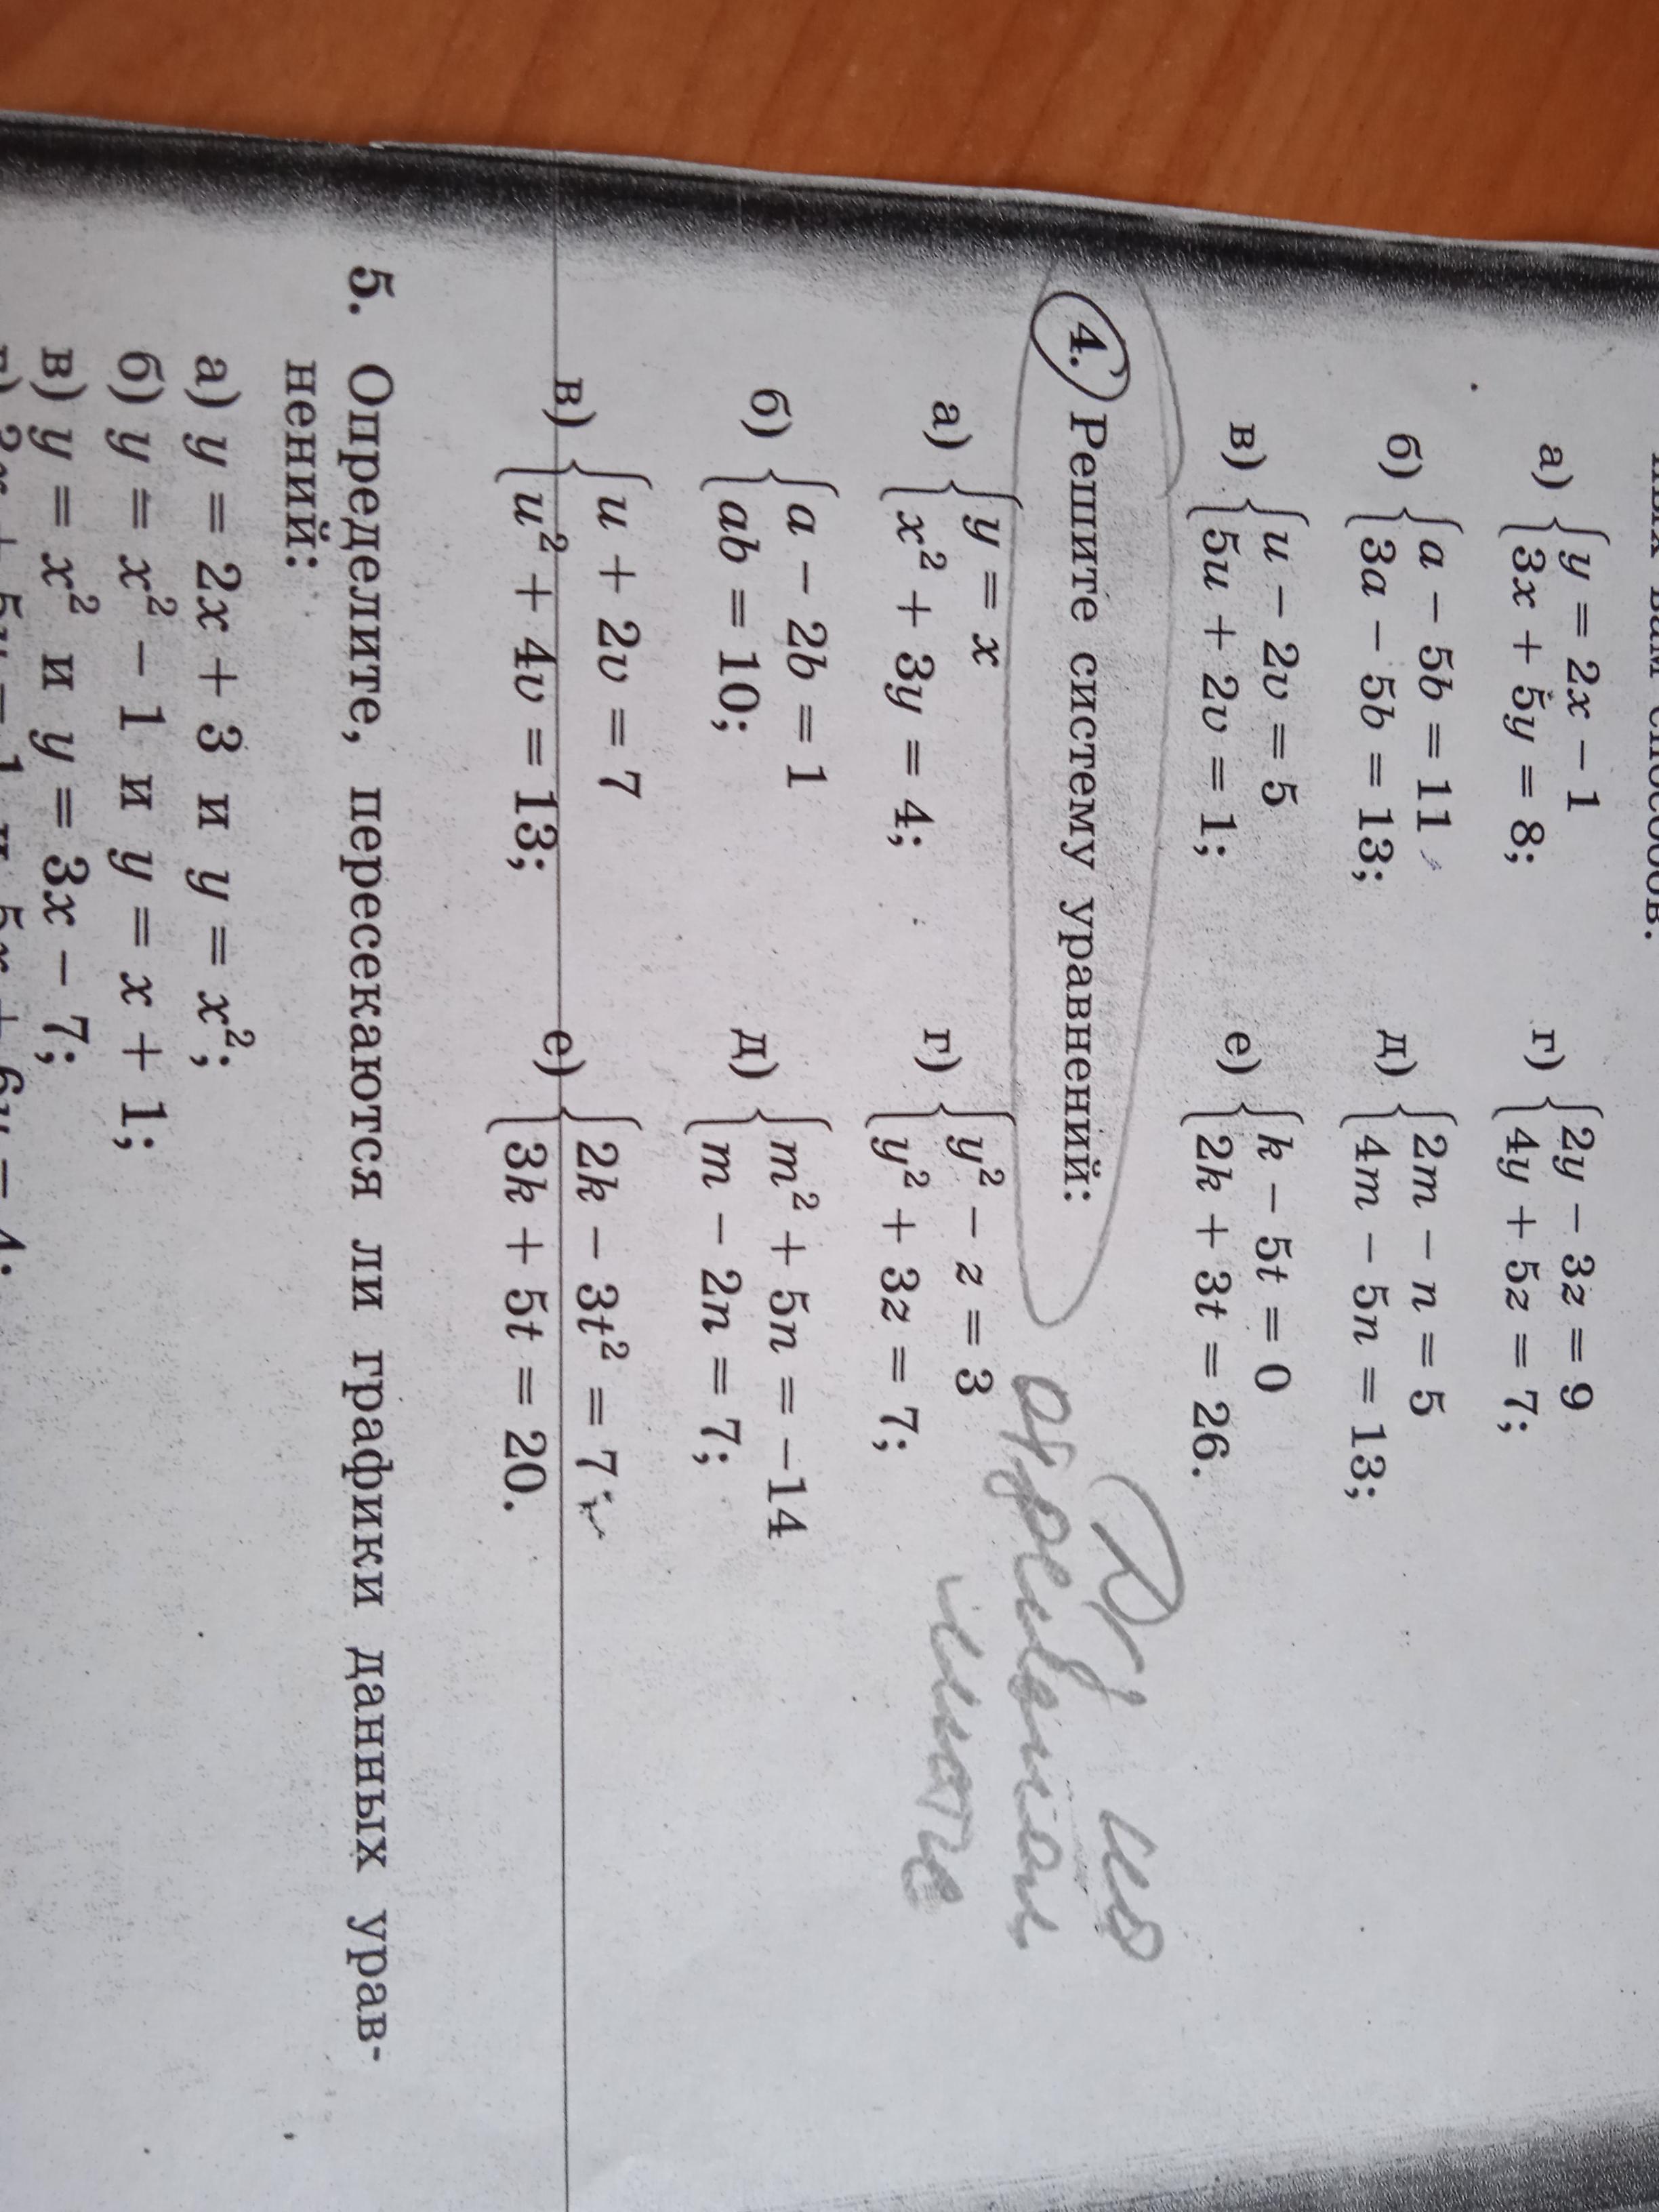 способов.
а) { y = 2x − 1
3x + 5y = 8;
г) { 2y − 3z = 9
4y + 5z = 7;
б) { a − 5b = 11
3a − 5b = 13;
д) { 2m − n = 5
4m − 5n = 13;
в) { u − 2v = 5
5u + 2v = 1;
е) { k − 5t = 0
2k + 3t = 26.
4. Решите систему уравнений:
на
отдельном
листе
а) { y = x
x² + 3y = 4;
г) { y² − z = 3
y² + 3z = 7;
б) { a − 2b = 1
ab = 10;
д) { m² + 5n = −14
m − 2n = 7;
в) { u + 2v = 7
u² + 4v = 13;
е) { 2k − 3t² = 7
3k + 5t = 20.
5. Определите, пересекаются ли графики данных урав-
нений:
а) y = 2x + 3 и y = x²;
б) y = x² − 1 и y = x + 1;
в) y = x² и y = 3x − 7;